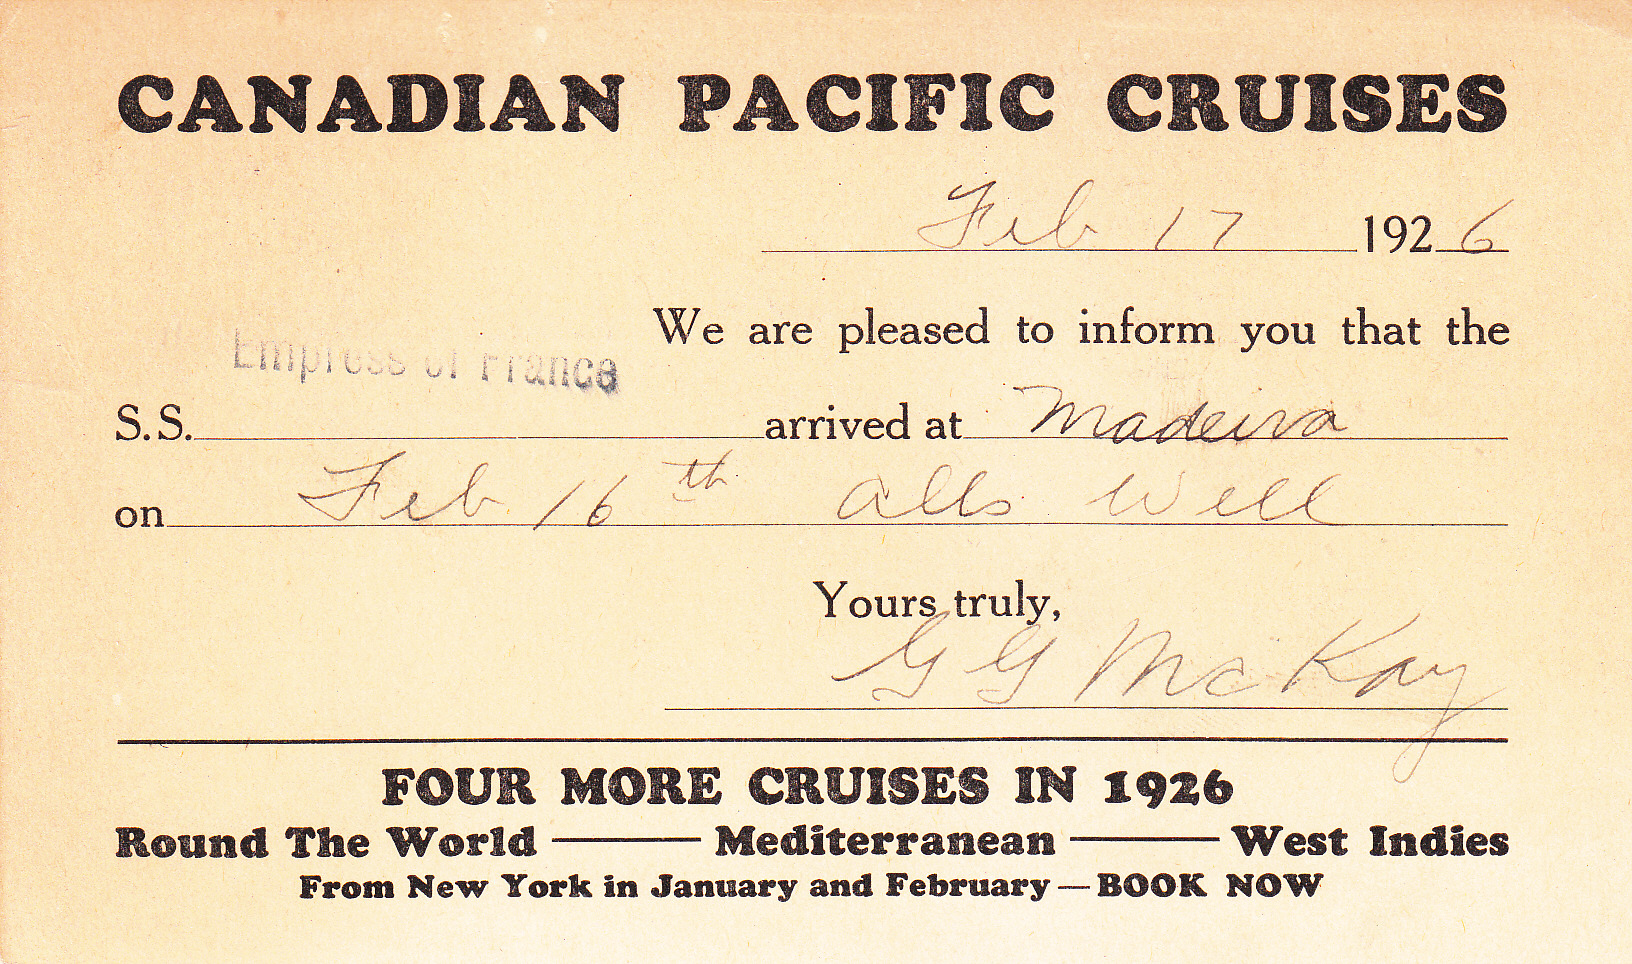 CANADIAN PACIFIC CRUISES
Feb 17 1926
We are pleased to inform you that the
Empress of France
S.S. arrived at Madeira
on Feb 16th alls well
Yours truly,
G G McKay
FOUR MORE CRUISES IN 1926
Round The World — Mediterranean — West Indies
From New York in January and February — BOOK NOW